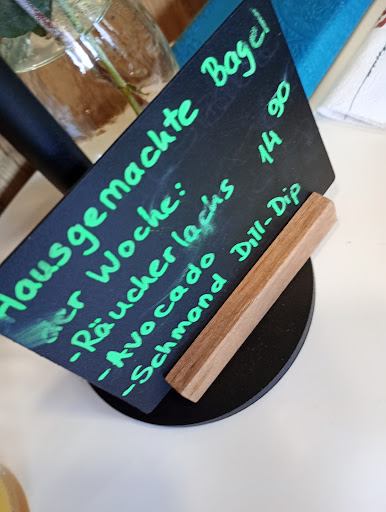 Hausgemachte Bagel
der Woche:
-Räucherlachs 14 90
-Avocado
-Schmand Dill-Dip